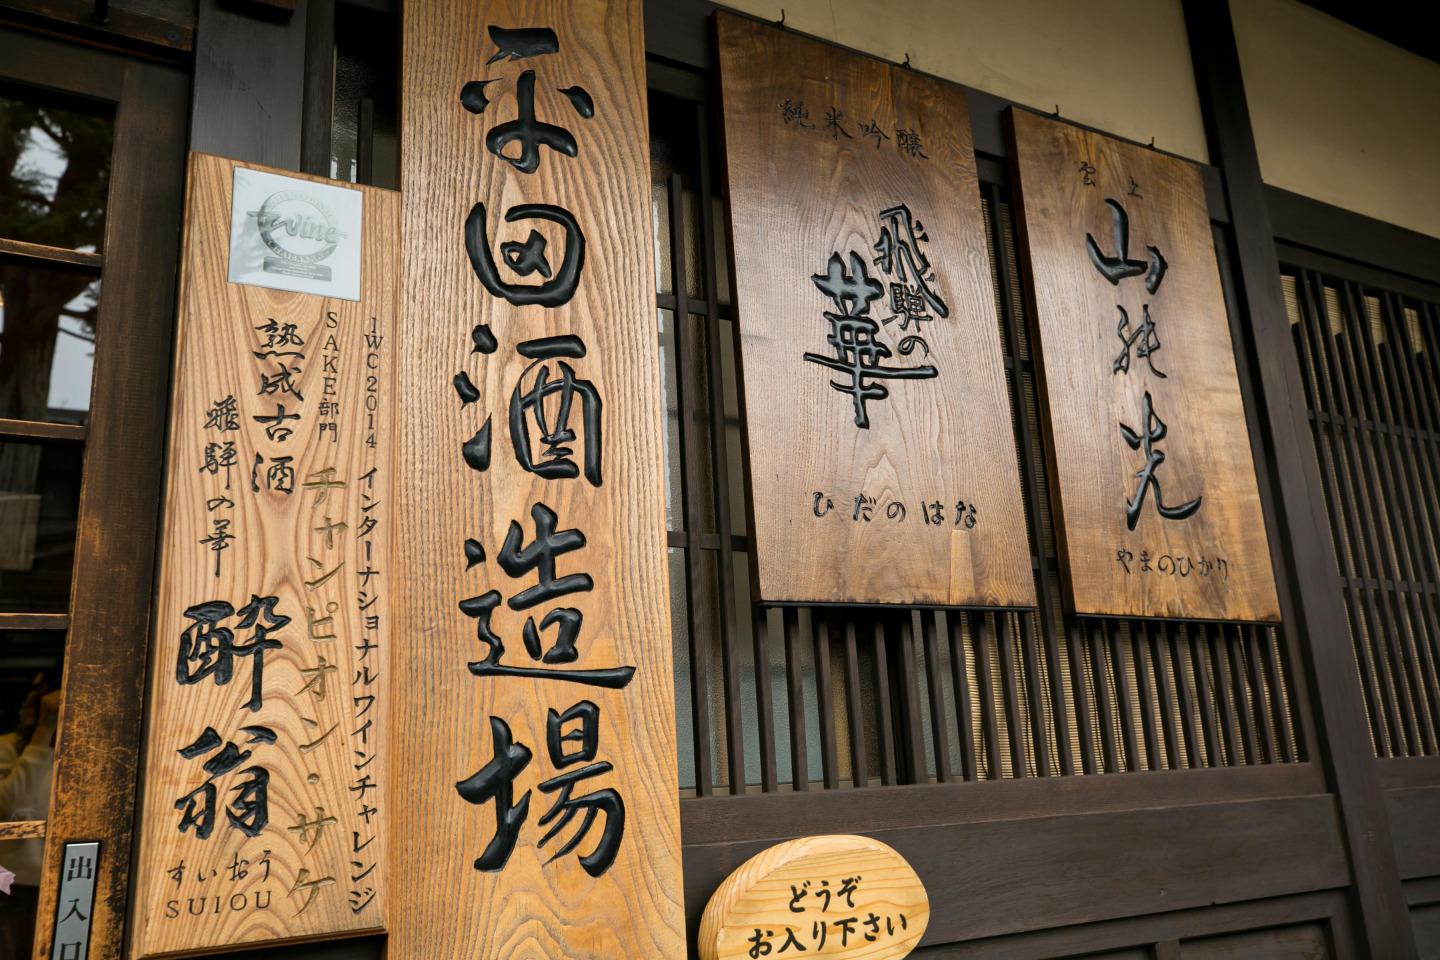 平田酒造場
INTERNATIONAL
Wine
CHALLENGE
IWC2014 インターナショナルワインチャレンジ
SAKE部門 チャンピオン・サケ
熟成古酒
飛騨の華
酔翁
すいおう
SUIOU
純米吟醸
飛騨の
華
ひだのはな
雲上
山純光
やまのひかり
どうぞ
お入り下さい
出入口